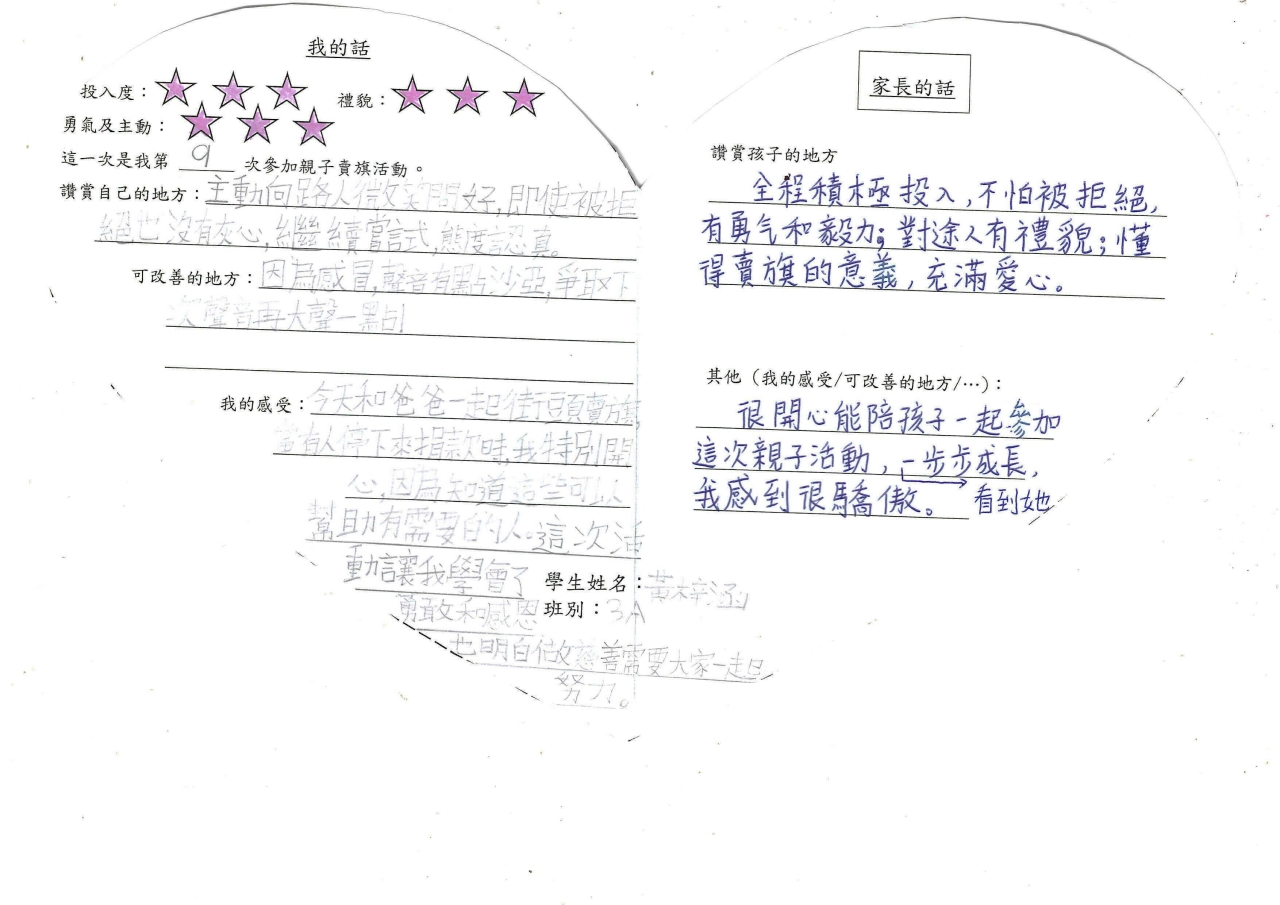 我的話
投入度： 禮貌：
勇氣及主動：
這一次是我第 9 次參加親子賣旗活動。
讚賞自己的地方：主動向路人微笑問好，即使被拒
絕也沒有灰心，繼續嘗試，態度認真。
可改善的地方：因為感冒，聲音有點沙亞，爭取下
次聲音再大聲一點
我的感受：今天和爸爸一起街頭賣旗，
當有人停下來捐款時，我特別開
心，因為知道這些可以
幫助有需要的人。這次活
動讓我學會了
勇敢和感恩
也明白做慈善需要大家一起
努力。
學生姓名：黃梓涵
班別：3A
家長的話
讚賞孩子的地方
全程積極投入，不怕被拒絕，
有勇气和毅力；對途人有禮貌；懂
得賣旗的意義，充滿愛心。
其他（我的感受/可改善的地方/…）：
很開心能陪孩子一起參加
這次親子活動，一步步成長，
我感到很驕傲。 看到她